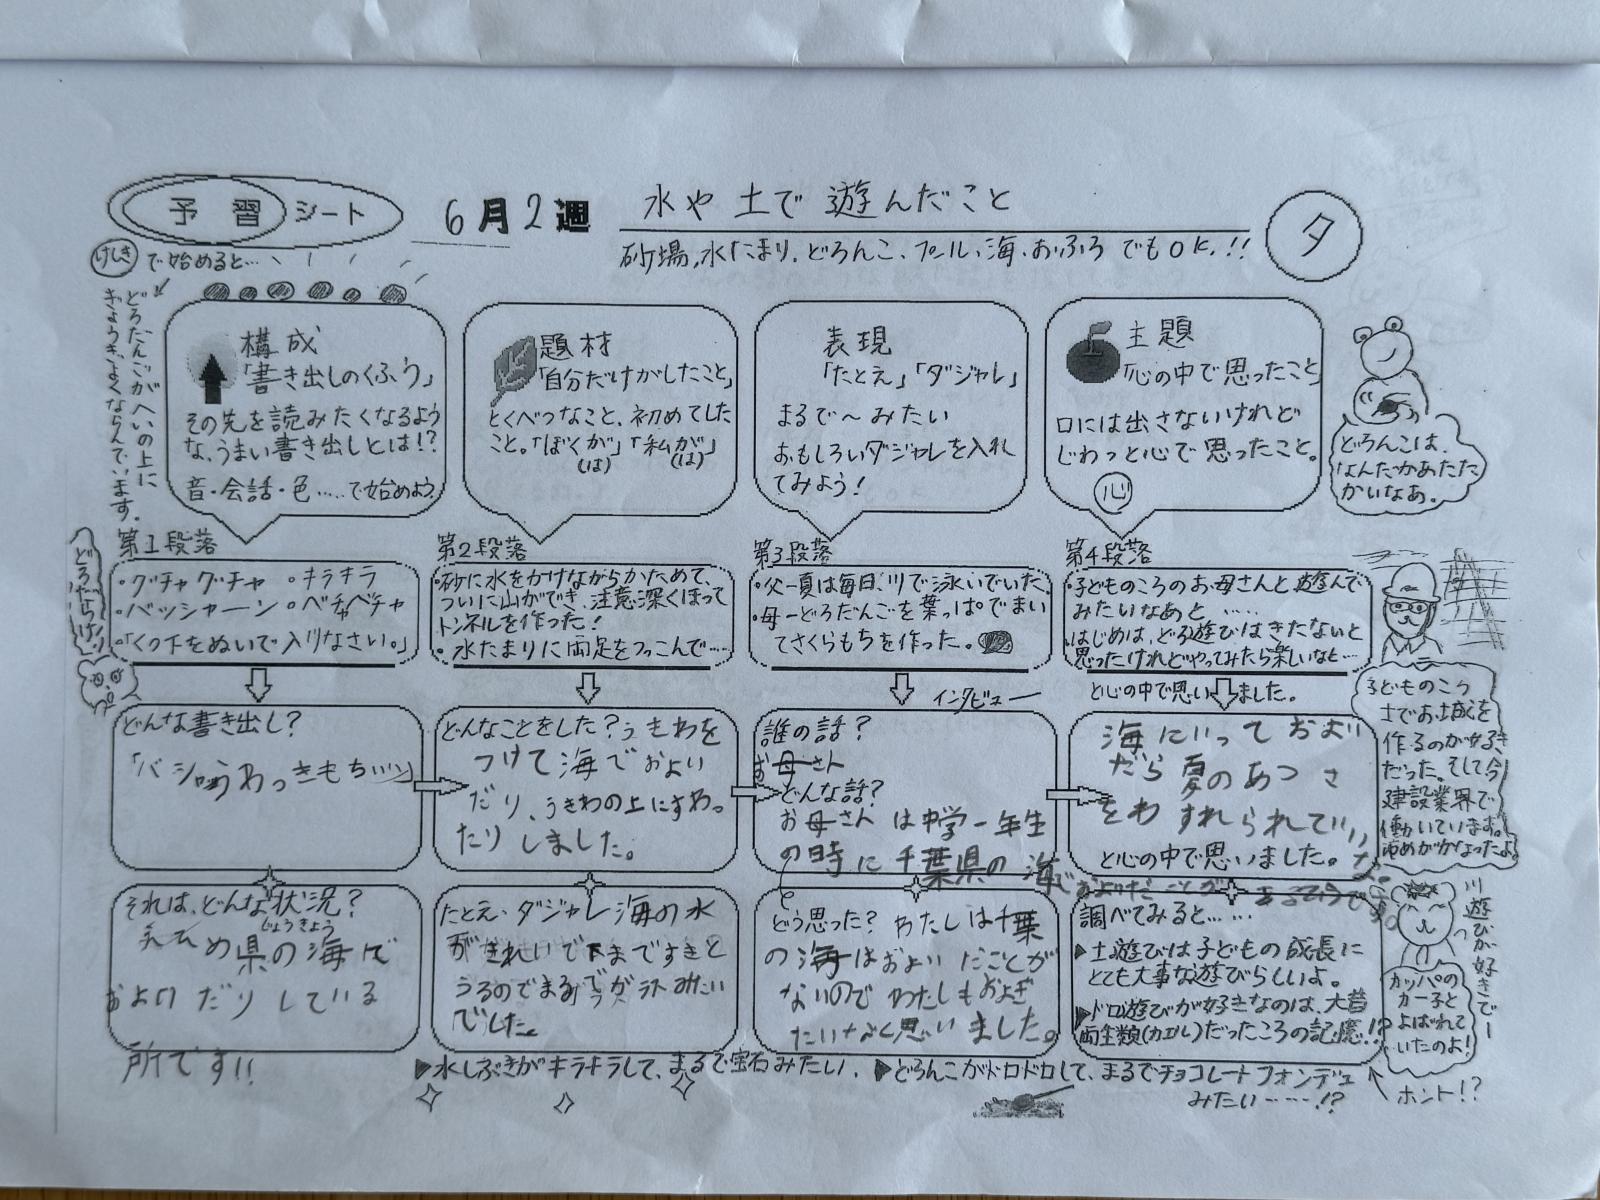 予習シート
6月2週
水や土で遊んだこと
砂場、水たまり、どろんこ、プール、海、おふろ でもOK!!
夕
けしき
で始めると…
どろだんごがへいの上に
ぎょうぎよくならんでいます。
構成
「書き出しのくふう」
その先を読みたくなるよう
な、うまい書き出しとは!?
音・会話・色……で始めよう。
題材
「自分だけがしたこと」
とくべつなこと、初めてした
こと。「ぼくが」「私が」
(は) (は)
表現
「たとえ」「ダジャレ」
まるで〜みたい
おもしろいダジャレを入れ
てみよう!
主題
「心の中で思ったこと」
口には出さないけれど
じわっと心で思ったこと。
心
どろんこは、
なんだかあたた
かいなあ。
どろだらけ!
第1段落
・グチャグチャ ・キラキラ
・バッシャーン ・ペチャペチャ
・「くつ下をぬいで入りなさい。」
第2段落
・砂に水をかけながらかためて、
ついに山ができ、注意深くほって
トンネルを作った!
・水たまりに両足をつっこんで……
第3段落
・父ー夏は毎日、川で泳いでいた。
・母ーどろだんごを葉っぱでまい
てさくらもちを作った。
第4段落
・子どものころのお母さんと遊んで
みたいなあと……
はじめは、どろ遊びはきたないと
思ったけれどやってみたら楽しいなと…
と心の中で思いました。
インタビュー
どんな書き出し?
どんなことをした?うきわを
つけて海でおよい
だり、うきわの上にすわっ
たりしました。
誰の話?
お母さん
どんな話?
お母さんは中学一年生
の時に千葉県の海で
およいだことが
海にいっておよい
だら夏のあつさ
をわすれられていいな
と心の中で思いました。
子どものころ
土でお城を
作るのが好き
だった。そして今
建設業界で
働いています。
ゆめがかなったよ。
それは、どんな状況?
じょうきょう
県の海で
およいだりしている
所です!!
たとえ・ダジャレ 海の水
がきれいで下まですきと
どう思った? わたしは千葉
の海はおよいだことが
ないのでわたしもおよぎ
たいなと思いました。
調べてみると……
▶土遊びは子どもの成長に
とても大事な遊びらしいよ。
▶ドロ遊びが好きなのは、大昔
両生類(カエル)だったころの記憶!?
川遊びが好きでー
カッパの
カー子と
よばれて
いたのよ!
▶水しぶきがキラキラして、まるで宝石みたい。
▶どろんこがドロドロして、まるでチョコレートフォンデュ
みたい……!?
ホント!?